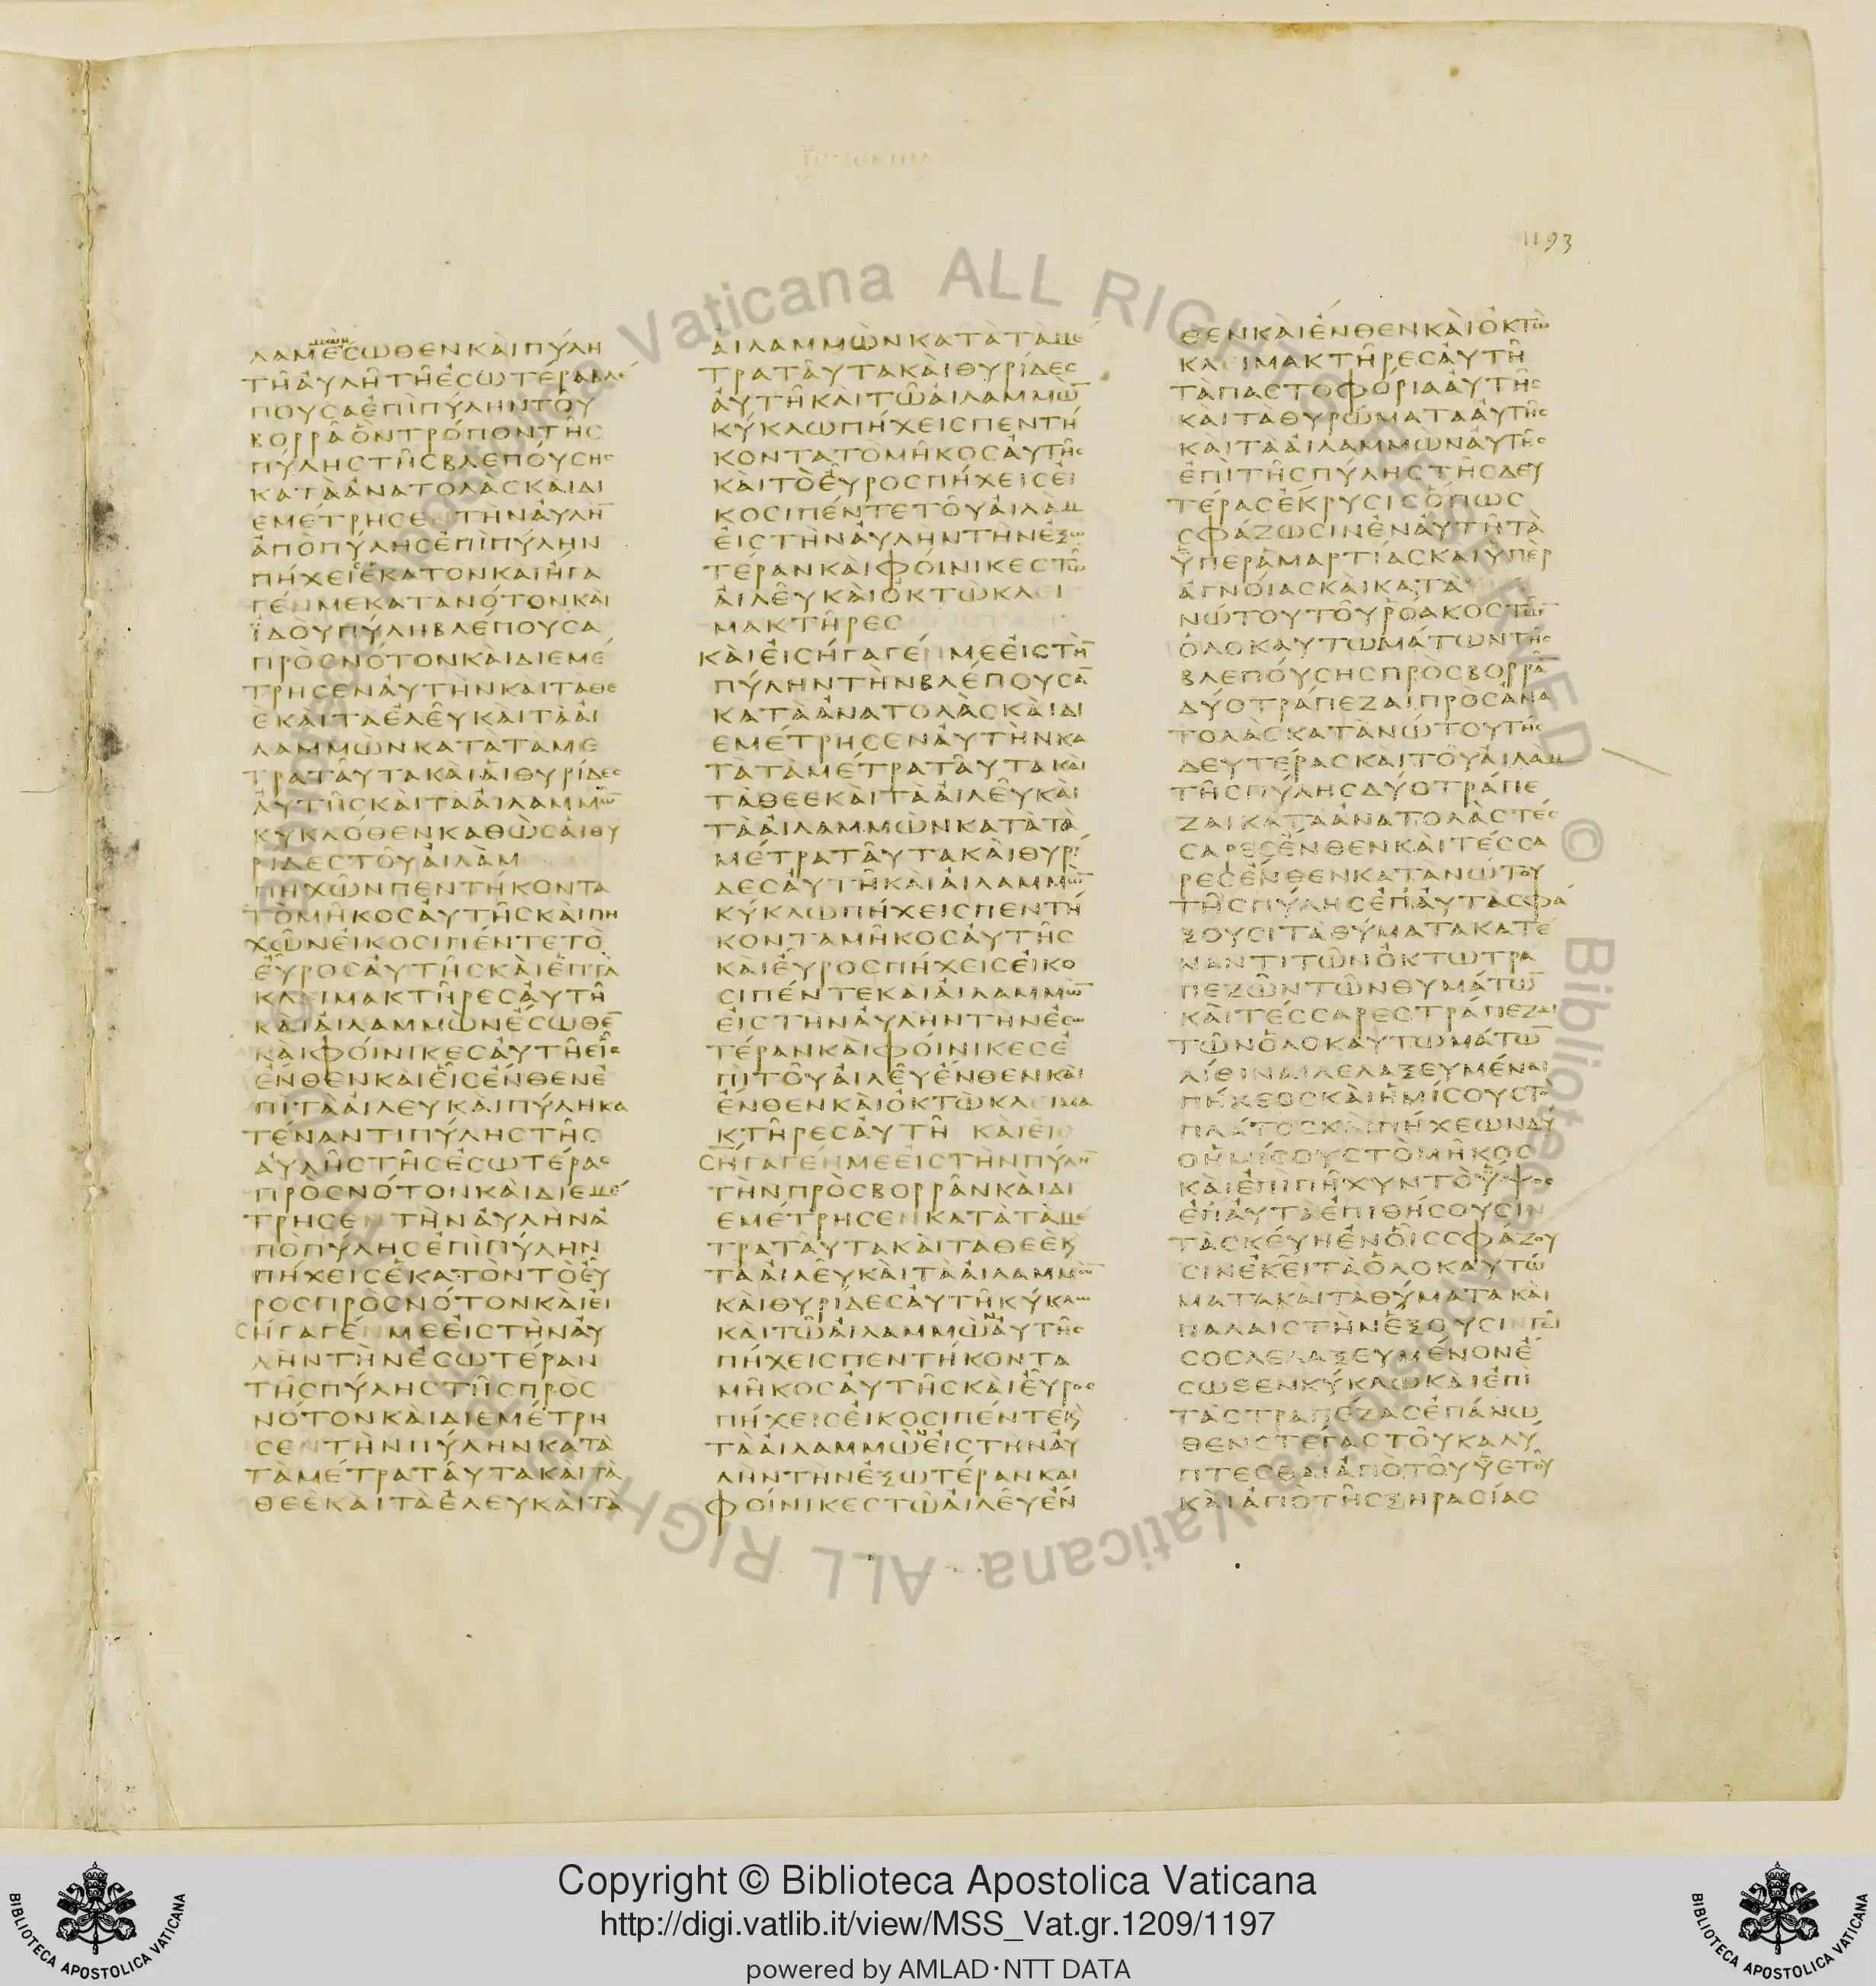 ΙΕΖΕΚΙΗΛ
1193
ΛΑΜΕΣΩΘΕΝΚΑΙΠΥΛΗ
ΤΗΑΥΛΗΤΗΕΣΩΤΕΡΑΒΛΕ
ΠΟΥΣΑΕΠΙΠΥΛΗΝΤΟΥ
ΒΟΡΡΑΟΝΤΡΟΠΟΝΤΗΣ
ΠΥΛΗΣΤΗΣΒΛΕΠΟΥΣΗΣ
ΚΑΤΑΑΝΑΤΟΛΑΣΚΑΙΔΙ
ΕΜΕΤΡΗΣΕΝΤΗΝΑΥΛΗ̅
ΑΠΟΠΥΛΗΣΕΠΙΠΥΛΗΝ
ΠΗΧΕΙΣΕΚΑΤΟΝΚΑΙΗΓΑ
ΓΕΝΜΕΚΑΤΑΝΟΤΟΝΚΑΙ
ΪΔΟΥΠΥΛΗΒΛΕΠΟΥΣΑ
ΠΡΟΣΝΟΤΟΝΚΑΙΔΙΕΜΕ
ΤΡΗΣΕΝΑΥΤΗΝΚΑΙΤΑΘΕ
ΕΚΑΙΤΑΕΛΕΥΚΑΙΤΑΑΙ
ΛΑΜΜΩΝΚΑΤΑΤΑΜΕ
ΤΡΑΤΑΥΤΑΚΑΙΑΙΘΥΡΙΔΕΣ
ΑΥΤΗΣΚΑΙΤΑΑΙΛΑΜΜΩ̅
ΚΥΚΛΟΘΕΝΚΑΘΩΣΑΙΘΥ
ΡΙΔΕΣΤΟΥΑΙΛΑΜ
ΠΗΧΩΝΠΕΝΤΗΚΟΝΤΑ
ΤΟΜΗΚΟΣΑΥΤΗΣΚΑΙΠΗ
ΧΩΝΕΙΚΟΣΙΠΕΝΤΕΤΟ
ΕΥΡΟΣΑΥΤΗΣΚΑΙΕΠΤΑ
ΚΛΕΙΜΑΚΤΗΡΕΣΑΥΤΗ
ΚΑΙΑΙΛΑΜΜΩΝΕΣΩΘΕ̅
ΚΑΙΦΟΙΝΙΚΕΣΑΥΤΗΕΙΣ
ΕΝΘΕΝΚΑΙΕΙΣΕΝΘΕΝΕ
ΠΙΤΑΑΙΛΕΥΚΑΙΠΥΛΗΚΑ
ΤΕΝΑΝΤΙΠΥΛΗΣΤΗΣ
ΑΥΛΗΣΤΗΣΕΣΩΤΕΡΑΣ
ΠΡΟΣΝΟΤΟΝΚΑΙΔΙΕΜΕ
ΤΡΗΣΕΝΤΗΝΑΥΛΗΝΑ
ΠΟΠΥΛΗΣΕΠΙΠΥΛΗΝ
ΠΗΧΕΙΣΕΚΑΤΟΝΤΟΕΥ
ΡΟΣΠΡΟΣΝΟΤΟΝΚΑΙΕΙ
ΣΗΓΑΓΕΝΜΕΕΙΣΤΗΝΑΥ
ΛΗΝΤΗΝΕΣΩΤΕΡΑΝ
ΤΗΣΠΥΛΗΣΤΗΣΠΡΟΣ
ΝΟΤΟΝΚΑΙΔΙΕΜΕΤΡΗ
ΣΕΝΤΗΝΠΥΛΗΝΚΑΤΑ
ΤΑΜΕΤΡΑΤΑΥΤΑΚΑΙΤΑ
ΘΕΕΚΑΙΤΑΕΛΕΥΚΑΙΤΑ
ΑΙΛΑΜΜΩΝΚΑΤΑΤΑΜΕ
ΤΡΑΤΑΥΤΑΚΑΙΘΥΡΙΔΕΣ
ΑΥΤΗΚΑΙΤΩΑΙΛΑΜΜΩ̅
ΚΥΚΛΩΠΗΧΕΙΣΠΕΝΤΗ
ΚΟΝΤΑΤΟΜΗΚΟΣΑΥΤΗΣ
ΚΑΙΤΟΕΥΡΟΣΠΗΧΕΙΣΕΙ
ΚΟΣΙΠΕΝΤΕΤΟΥΑΙΛΑΜ
ΕΙΣΤΗΝΑΥΛΗΝΤΗΝΕΞΩ
ΤΕΡΑΝΚΑΙΦΟΙΝΙΚΕΣΤΩ
ΑΙΛΕΥΚΑΙΟΚΤΩΚΛΕΙ
ΜΑΚΤΗΡΕΣ
ΚΑΙΕΙΣΗΓΑΓΕΝΜΕΕΙΣΤΗ̅
ΠΥΛΗΝΤΗΝΒΛΕΠΟΥΣΑ̅
ΚΑΤΑΑΝΑΤΟΛΑΣΚΑΙΔΙ
ΕΜΕΤΡΗΣΕΝΑΥΤΗΝΚΑ
ΤΑΤΑΜΕΤΡΑΤΑΥΤΑΚΑΙ
ΤΑΘΕΕΚΑΙΤΑΑΙΛΕΥΚΑΙ
ΤΑΑΙΛΑΜΜΩΝΚΑΤΑΤΑ
ΜΕΤΡΑΤΑΥΤΑΚΑΙΘΥΡΙ
ΔΕΣΑΥΤΗΚΑΙΑΙΛΑΜΜΩ̅
ΚΥΚΛΩΠΗΧΕΙΣΠΕΝΤΗ
ΚΟΝΤΑΜΗΚΟΣΑΥΤΗΣ
ΚΑΙΕΥΡΟΣΠΗΧΕΙΣΕΙΚΟ
ΣΙΠΕΝΤΕΚΑΙΑΙΛΑΜΜΩ̅
ΕΙΣΤΗΝΑΥΛΗΝΤΗΝΕΣΩ
ΤΕΡΑΝΚΑΙΦΟΙΝΙΚΕΣΕ
ΠΙΤΟΥΑΙΛΕΥΕΝΘΕΝΚΑΙ
ΕΝΘΕΝΚΑΙΟΚΤΩΚΛΕΙΜΑ
ΚΤΗΡΕΣΑΥΤΗ ΚΑΙΕΙ
ΣΗΓΑΓΕΝΜΕΕΙΣΤΗΝΠΥΛΗ̅
ΤΗΝΠΡΟΣΒΟΡΡΑΝΚΑΙΔΙ
ΕΜΕΤΡΗΣΕΝΚΑΤΑΤΑΜΕ
ΤΡΑΤΑΥΤΑΚΑΙΤΑΘΕΕΚϚ
ΤΑΑΙΛΕΥΚΑΙΤΑΑΙΛΑΜΜΩ̅
ΚΑΙΘΥΡΙΔΕΣΑΥΤΗΚΥΚΛΩ
ΚΑΙΤΩΑΙΛΑΜΜΩΝΑΥΤΗΣ
ΠΗΧΕΙΣΠΕΝΤΗΚΟΝΤΑ
ΜΗΚΟΣΑΥΤΗΣΚΑΙΕΥΡΟΣ
ΠΗΧΕΙΣΕΙΚΟΣΙΠΕΝΤΕΚϚ
ΤΑΑΙΛΑΜΜΩΝΕΙΣΤΗΝΑΥ
ΛΗΝΤΗΝΕΞΩΤΕΡΑΝΚΑΙ
ΦΟΙΝΙΚΕΣΤΩΑΙΛΕΥΕΝ
ΘΕΝΚΑΙΕΝΘΕΝΚΑΙΟΚΤΩ
ΚΛΕΙΜΑΚΤΗΡΕΣΑΥΤΗ
ΤΑΠΑΣΤΟΦΟΡΙΑΑΥΤΗΣ
ΚΑΙΤΑΘΥΡΩΜΑΤΑΑΥΤΗΣ
ΚΑΙΤΑΑΙΛΑΜΜΩΝΑΥΤΗΣ
ΕΠΙΤΗΣΠΥΛΗΣΤΗΣΔΕΥ
ΤΕΡΑΣΕΚΡΥΣΙΣΟΠΩΣ
ΣΦΑΖΩΣΙΝΕΝΑΥΤΗΤΑ
ΫΠΕΡΑΜΑΡΤΙΑΣΚΑΙΫΠΕΡ
ΑΓΝΟΙΑΣΚΑΙΚΑΤΑ
ΝΩΤΟΥΤΟΥΡΟΑΚΟΣΤΩ̅
ΟΛΟΚΑΥΤΩΜΑΤΩΝΤΗΣ
ΒΛΕΠΟΥΣΗΣΠΡΟΣΒΟΡΡΑ̅
ΔΥΟΤΡΑΠΕΖΑΙΠΡΟΣΑΝΑ
ΤΟΛΑΣΚΑΤΑΝΩΤΟΥΤΗΣ
ΔΕΥΤΕΡΑΣΚΑΙΤΟΥΑΙΛΑΜ
ΤΗΣΠΥΛΗΣΔΥΟΤΡΑΠΕ
ΖΑΙΚΑΤΑΑΝΑΤΟΛΑΣΤΕΣ
ΣΑΡΕΣΕΝΘΕΝΚΑΙΤΕΣΣΑ
ΡΕΣΕΝΘΕΝΚΑΤΑΝΩΤΟΥ
ΤΗΣΠΥΛΗΣΕΠΑΥΤΑΣΦΑ
ΞΟΥΣΙΤΑΘΥΜΑΤΑΚΑΤΕ
ΝΑΝΤΙΤΩΝΟΚΤΩΤΡΑ
ΠΕΖΩΝΤΩΝΘΥΜΑΤΩ̅
ΚΑΙΤΕΣΣΑΡΕΣΤΡΑΠΕΖΑΙ
ΤΩΝΟΛΟΚΑΥΤΩΜΑΤΩ̅
ΛΙΘΙΝΑΙΛΕΛΑΞΕΥΜΕΝΑΙ
ΠΗΧΕΟΣΚΑΙΗΜΙΣΟΥΣΤΟ
ΠΛΑΤΟΣΚΑΙΠΗΧΕΩΝΔΥ
ΟΗΜΙΣΟΥΣΤΟΜΗΚΟΣ
ΚΑΙΕΠΙΠΗΧΥΝΤΟΫΨΟΣ
ΕΠΑΥΤΑΕΠΙΘΗΣΟΥΣΙΝ
ΤΑΣΚΕΥΗΕΝΟΙΣΣΦΑΖΟΥ
ΣΙΝΕΚΕΙΤΑΟΛΟΚΑΥΤΩ
ΜΑΤΑΚΑΙΤΑΘΥΜΑΤΑΚΑΙ
ΠΑΛΑΙΣΤΗΝΕΞΟΥΣΙΝΓΕΙ
ΣΟΣΛΕΛΑΞΕΥΜΕΝΟΝΕ
ΣΩΘΕΝΚΥΚΛΩΚΑΙΕΠΙ
ΤΑΣΤΡΑΠΕΖΑΣΕΠΑΝΩ
ΘΕΝΣΤΕΓΑΣΤΟΥΚΑΛΥ
ΠΤΕΣΘΑΙΑΠΟΤΟΥΫΕΤΟΥ
ΚΑΙΑΠΟΤΗΣΞΗΡΑΣΙΑΣ
Vaticana ALL RIGHTS RESERVED © Biblioteca Vaticana ALL RIGHTS RESERVED © Biblioteca
Copyright © Biblioteca Apostolica Vaticana
http://digi.vatlib.it/view/MSS_Vat.gr.1209/1197
powered by AMLAD·NTT DATA
BIBLIOTECA APOSTOLICA VATICANA
BIBLIOTECA APOSTOLICA VATICANA